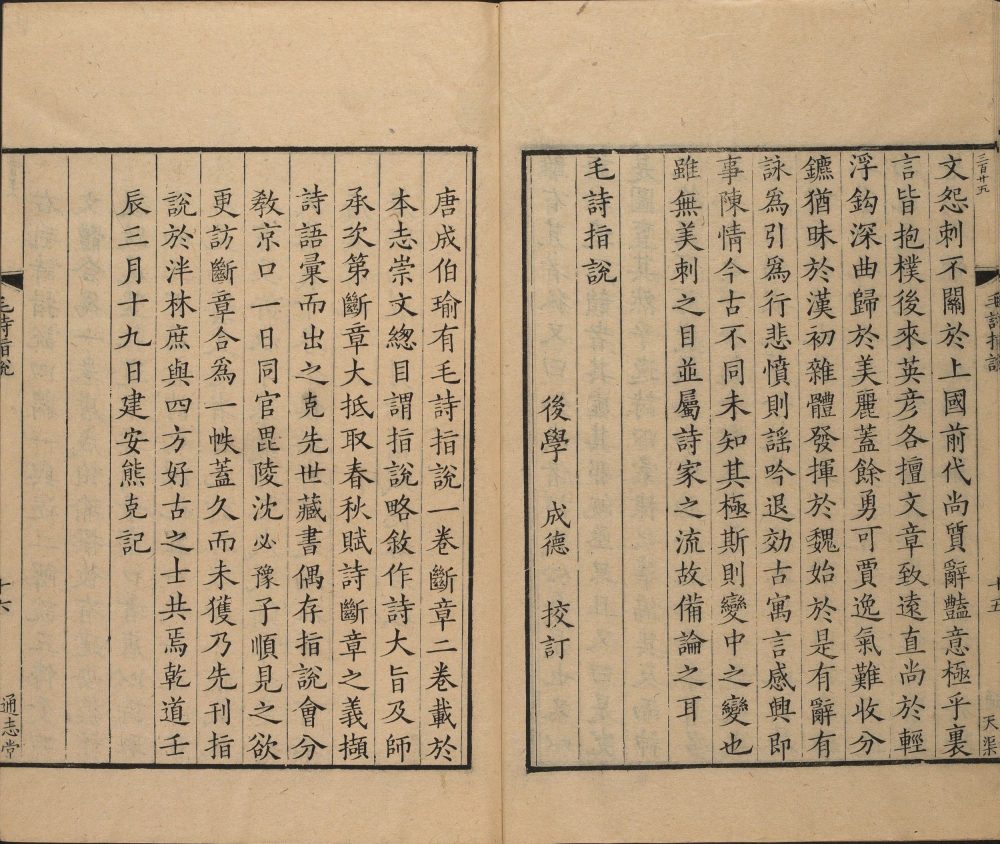 三百廿五
文怨刺不關於上國前代尚質辭豔意極乎裏
言皆抱樸後來英彥各擅文章致遠直尚於輕
浮鈎深曲歸於美麗蓋餘勇可賈逸氣難收分
鑣猶昧於漢初雜體發揮於魏始於是有辭有
詠爲引爲行悲憤則謡吟退効古寓言感興即
事陳情今古不同未知其極斯則變中之變也
雖無美刺之目並屬詩家之流故備論之耳
毛詩指說
後學 成德 挍訂
毛詩指說
十五
天渠
唐成伯瑜有毛詩指說一卷斷章二卷載於
本志崇文緫目謂指說略敘作詩大旨及師
承次第斷章大抵取春秋賦詩斷章之義擷
詩語彙而出之克先世藏書偶存指說會分
敎京口一日同官毘陵沈必豫子順見之欲
更訪斷章合爲一帙蓋久而未獲乃先刊指
說於泮林庶與四方好古之士共焉乾道壬
辰三月十九日建安熊克記
毛詩指說
十六
通志堂